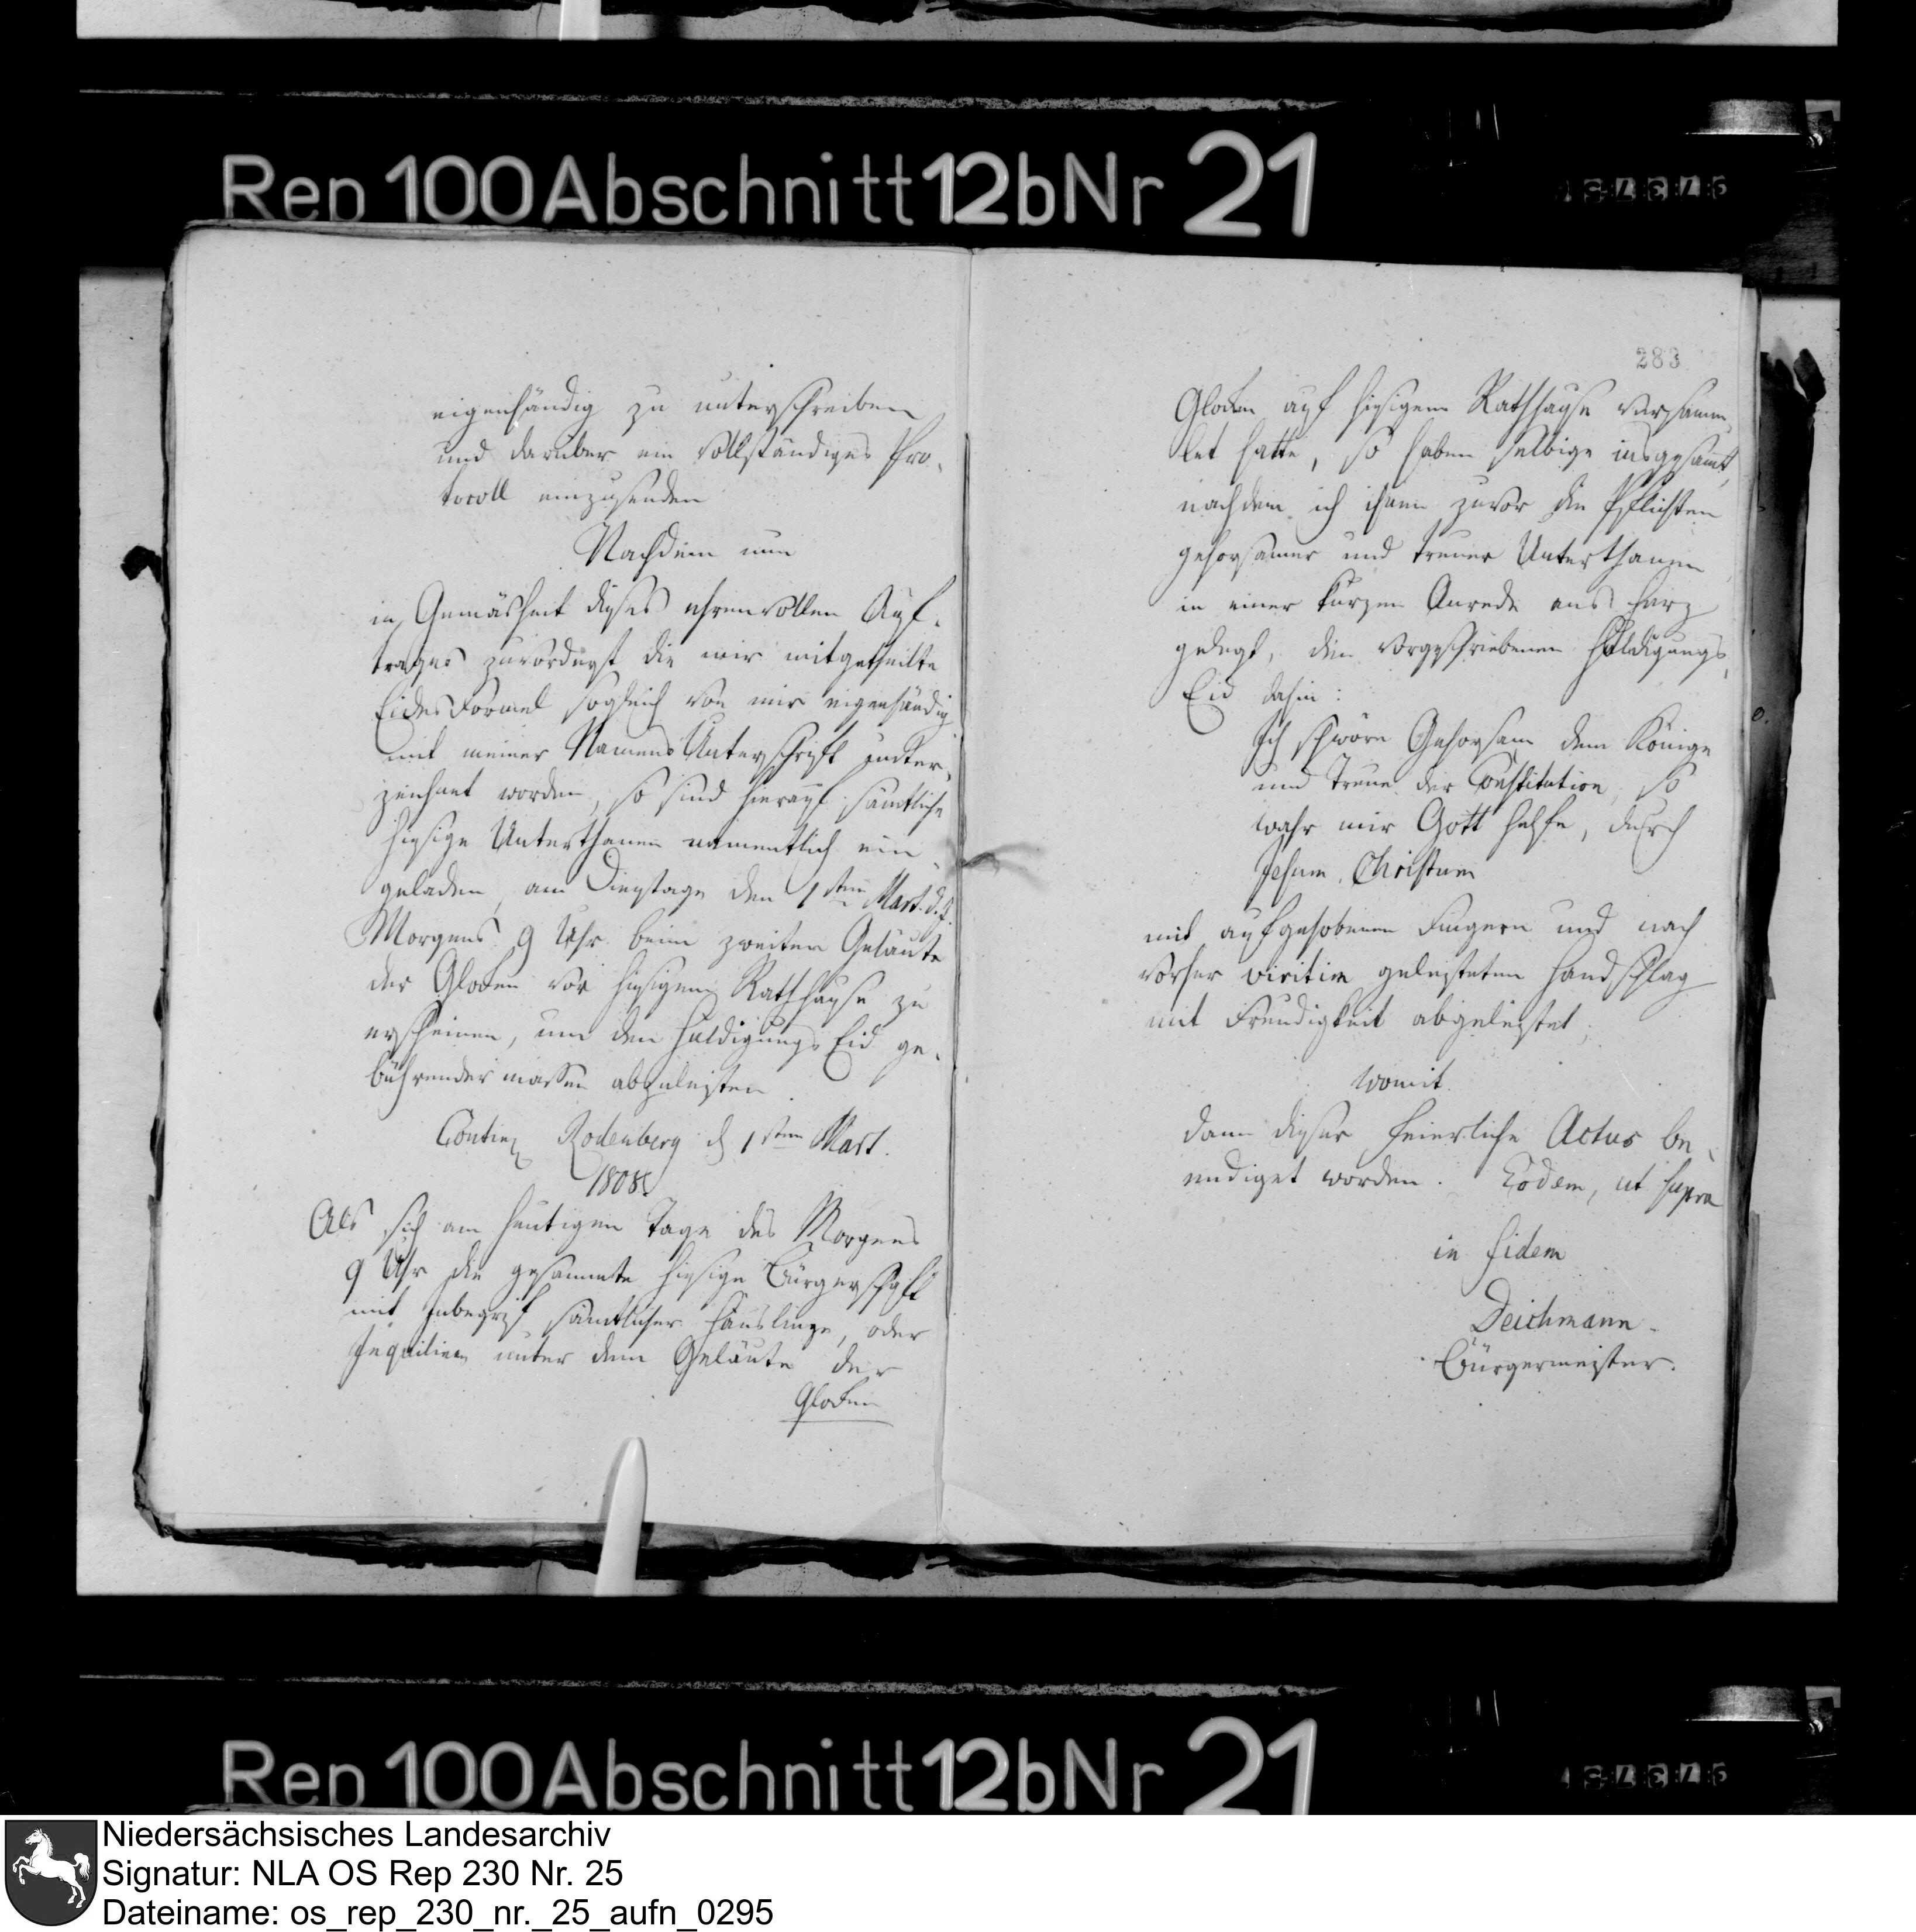 Rep 100 Abschnitt 12b Nr 21
eigenhändig zu unterschreiben
und darüber ein vollständiges Pro-
tocoll einzusenden
Nachdem nun
in Gemäsheit dieses ehrenvollen Auf-
trages zuvorderst die mir mitgetheilte
Eides Formel sogleich von mir eigenhändig
mit meiner Namens Unterschrift unter-
zeichnet worden, so sind hierauf sämtliche
hiesige Unterthanen namentlich ein-
geladen, am Dienstage den 1sten Mart. d. J.
Morgens 9 Uhr beim zweiten Geläute
der Glocken vor hiesigem Rathhause zu
erscheinen, um den Huldigungs Eid ge-
bührender massen abzuleisten
Rodenberg d 1sten Mart.
1808.
Als sich am heutigen Tage des Morgens
9 Uhr die gesammte hiesige Bürgerschaft
mit Inbegrif sämtlicher Häuslinge, oder
Inquilinen unter dem Geläute der
Glocken
283
Glocken auf hiesigem Rathhause versamm-
let hatte, so haben selbige insgesamt,
nachdem ich ihnen zuvor die Pflichten
gehorsamer und treuer Unterthanen
in einer kurzen Anrede ans Herz
gelegt, den vorgeschriebenen Huldigungs-
Eid dahin:
Ich schwöre Gehorsam dem Könige
und Treue der Constitution, so
wahr mir Gott helfe, durch
Jesum Christum
mit aufgehobenen Fingern und nach
vorher viritim geleisteten Handschlag
mit Freudigkeit abgeleistet,
womit
dann dieser feierliche Actus be-
endiget worden. Eodem, ut supra
in fidem
Deichmann
Bürgermeister.
Rep 100 Abschnitt 12b Nr 21
Niedersächsisches Landesarchiv
Signatur: NLA OS Rep 230 Nr. 25
Dateiname: os_rep_230_nr._25_aufn_0295